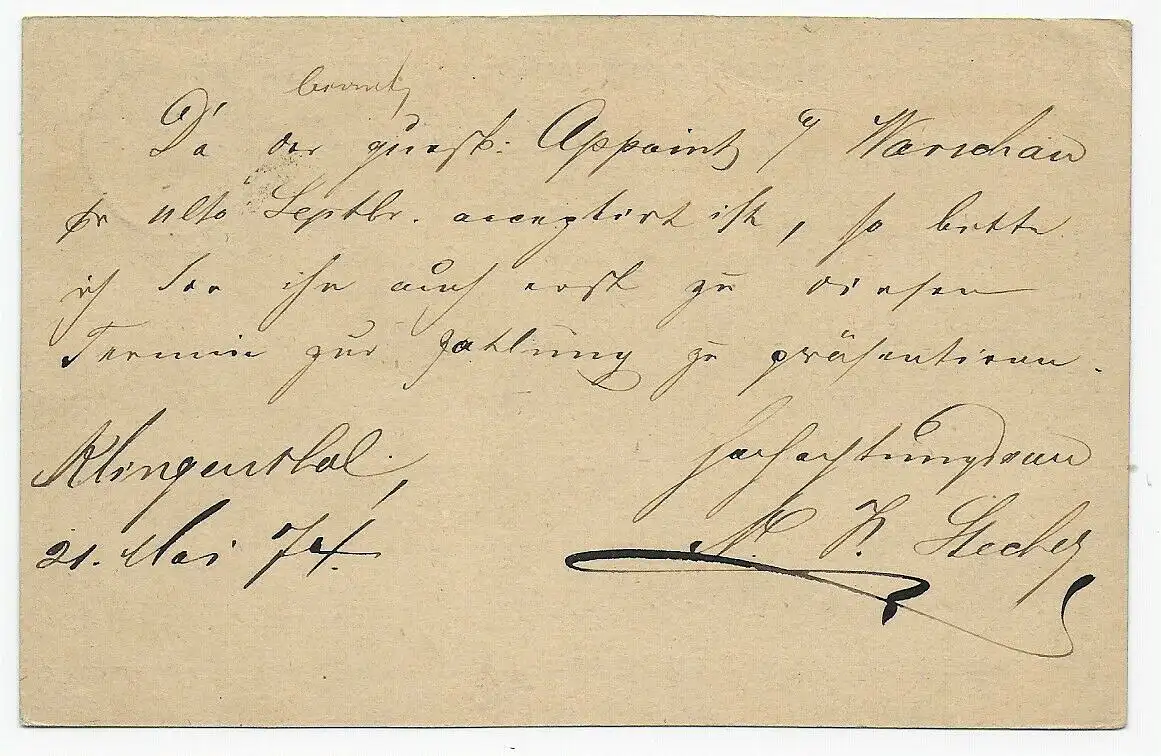 Da der quest. Appoint a/ Warschau
pr ulto Septbr. acceptirt ist, so bitte
ich Sie ihn auch erst zu diesem
Termin zur Zahlung zu präsentiren.
Hochachtungsvoll
Klingenthal,
21. Mai 74.
Stecher